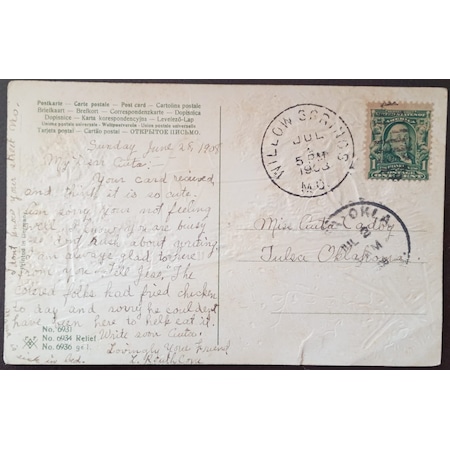 Postkarte – Carte postale – Post card – Cartolina postale
Briefkaart – Brefkort – Correspondenzkarte – Dopisnica
Dopisnice – Karta korespondencyjna – Levelező-Lap
Unione postale universale – Weltpostverein – Union postale universelle
Tarjeta postal – Cartão postal – ОТКРЫТОЕ ПИСЬМО.
Sunday June 28, 1908
My Dear Cuta:
Your card recieved
and think it is so cute.
Am sorry your not feeling
well. I know you are busy
so don't mind about writing
am always glad to hear
from you. Tell Jese. The
Colored folks had fried chicken
to day and sorry he couldent
have been here to help eat it.
Write soon Cuta.
Lovingly Your Friend
No. 6931
No. 6934 Relief
No. 6936
sick in bed.
WILLOW SPRINGS
JUL
1
5 PM
1908
MO.
1
OKLA
JUL
2
AM
Miss Cuta
Tulsa Oklahoma.